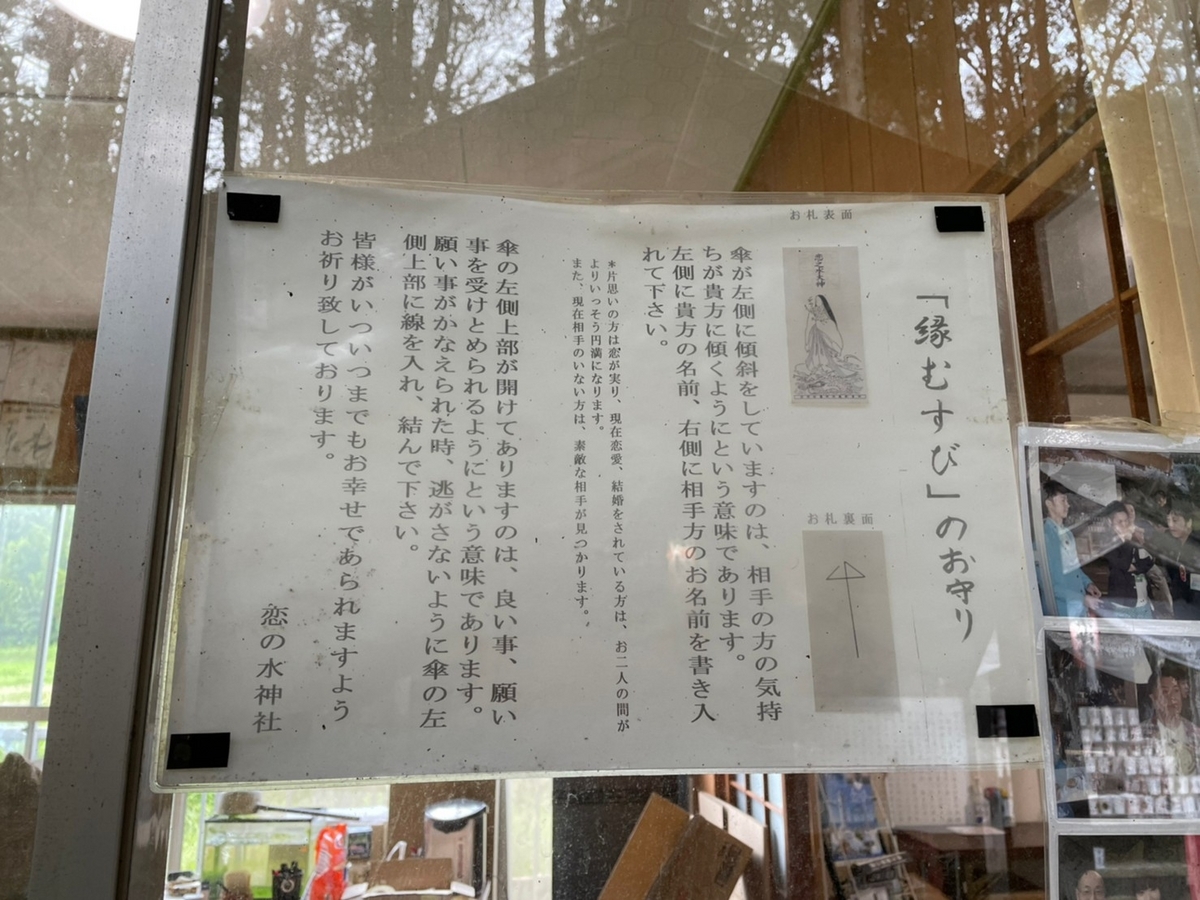 「縁むすび」のお守り
お札表面
恋之水大神
お札裏面
傘が左側に傾斜をしていますのは、相手の方の気持
ちが貴方に傾くようにという意味であります。
左側に貴方の名前、右側に相手方のお名前を書き入
れて下さい。
*片思いの方は恋が実り、現在恋愛、結婚をされている方は、お二人の間が
よりいっそう円満になります。
また、現在相手のいない方は、素敵な相手が見つかります。
傘の左側上部が開けてありますのは、良い事、願い
事を受けとめられるようにという意味であります。
願い事がかなえられた時、逃がさないように傘の左
側上部に線を入れ、結んで下さい。
皆様がいついつまでもお幸せであられますよう
お祈り致しております。
恋の水神社